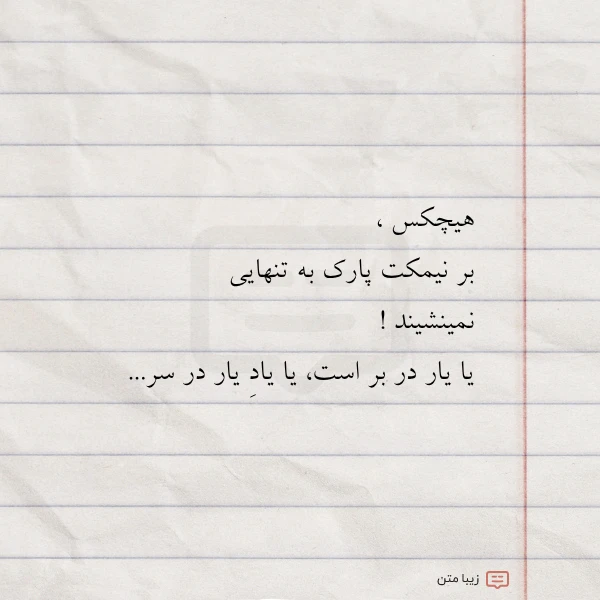 هیچکس ،
بر نیمکت پارک به تنهایی
نمینشیند !
یا یار در بر است، یا یادِ یار در سر...
زیبا متن